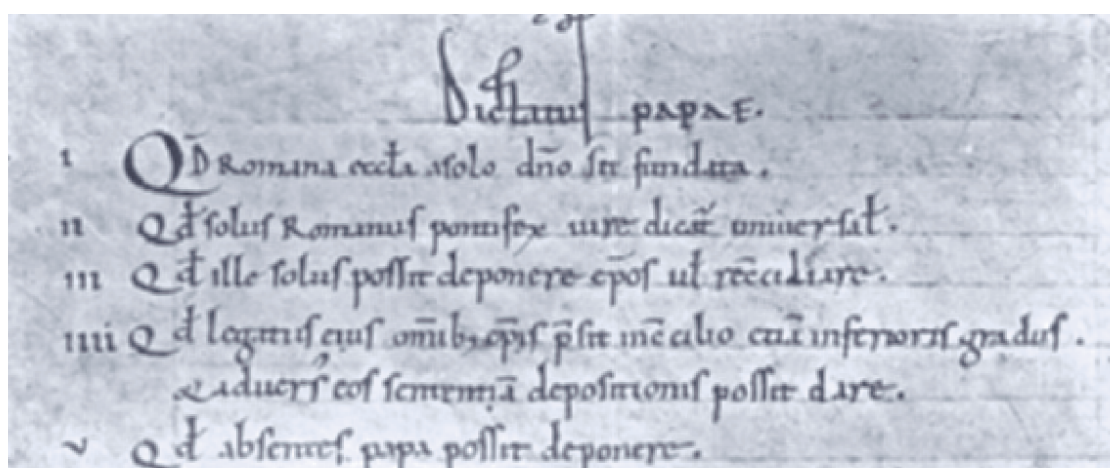 Dictatus papae.
ı Qd̄ Romana eccƚa asolo dño sit fundata.
ıı Qđ solus Romanus pontifex iure dicat̃ uniuersaƚ.
ııı Qđ ille solus possit deponere ep̄os uƚ rec̄ciliare.
ıııı Qđ legatus eius om̄ib; ep̄is p̄sit inc̄cilio etiā inferioris gradus.
& aduersꝰ eos sententiā depositionis possit dare.
v Qđ absentes papa possit deponere.